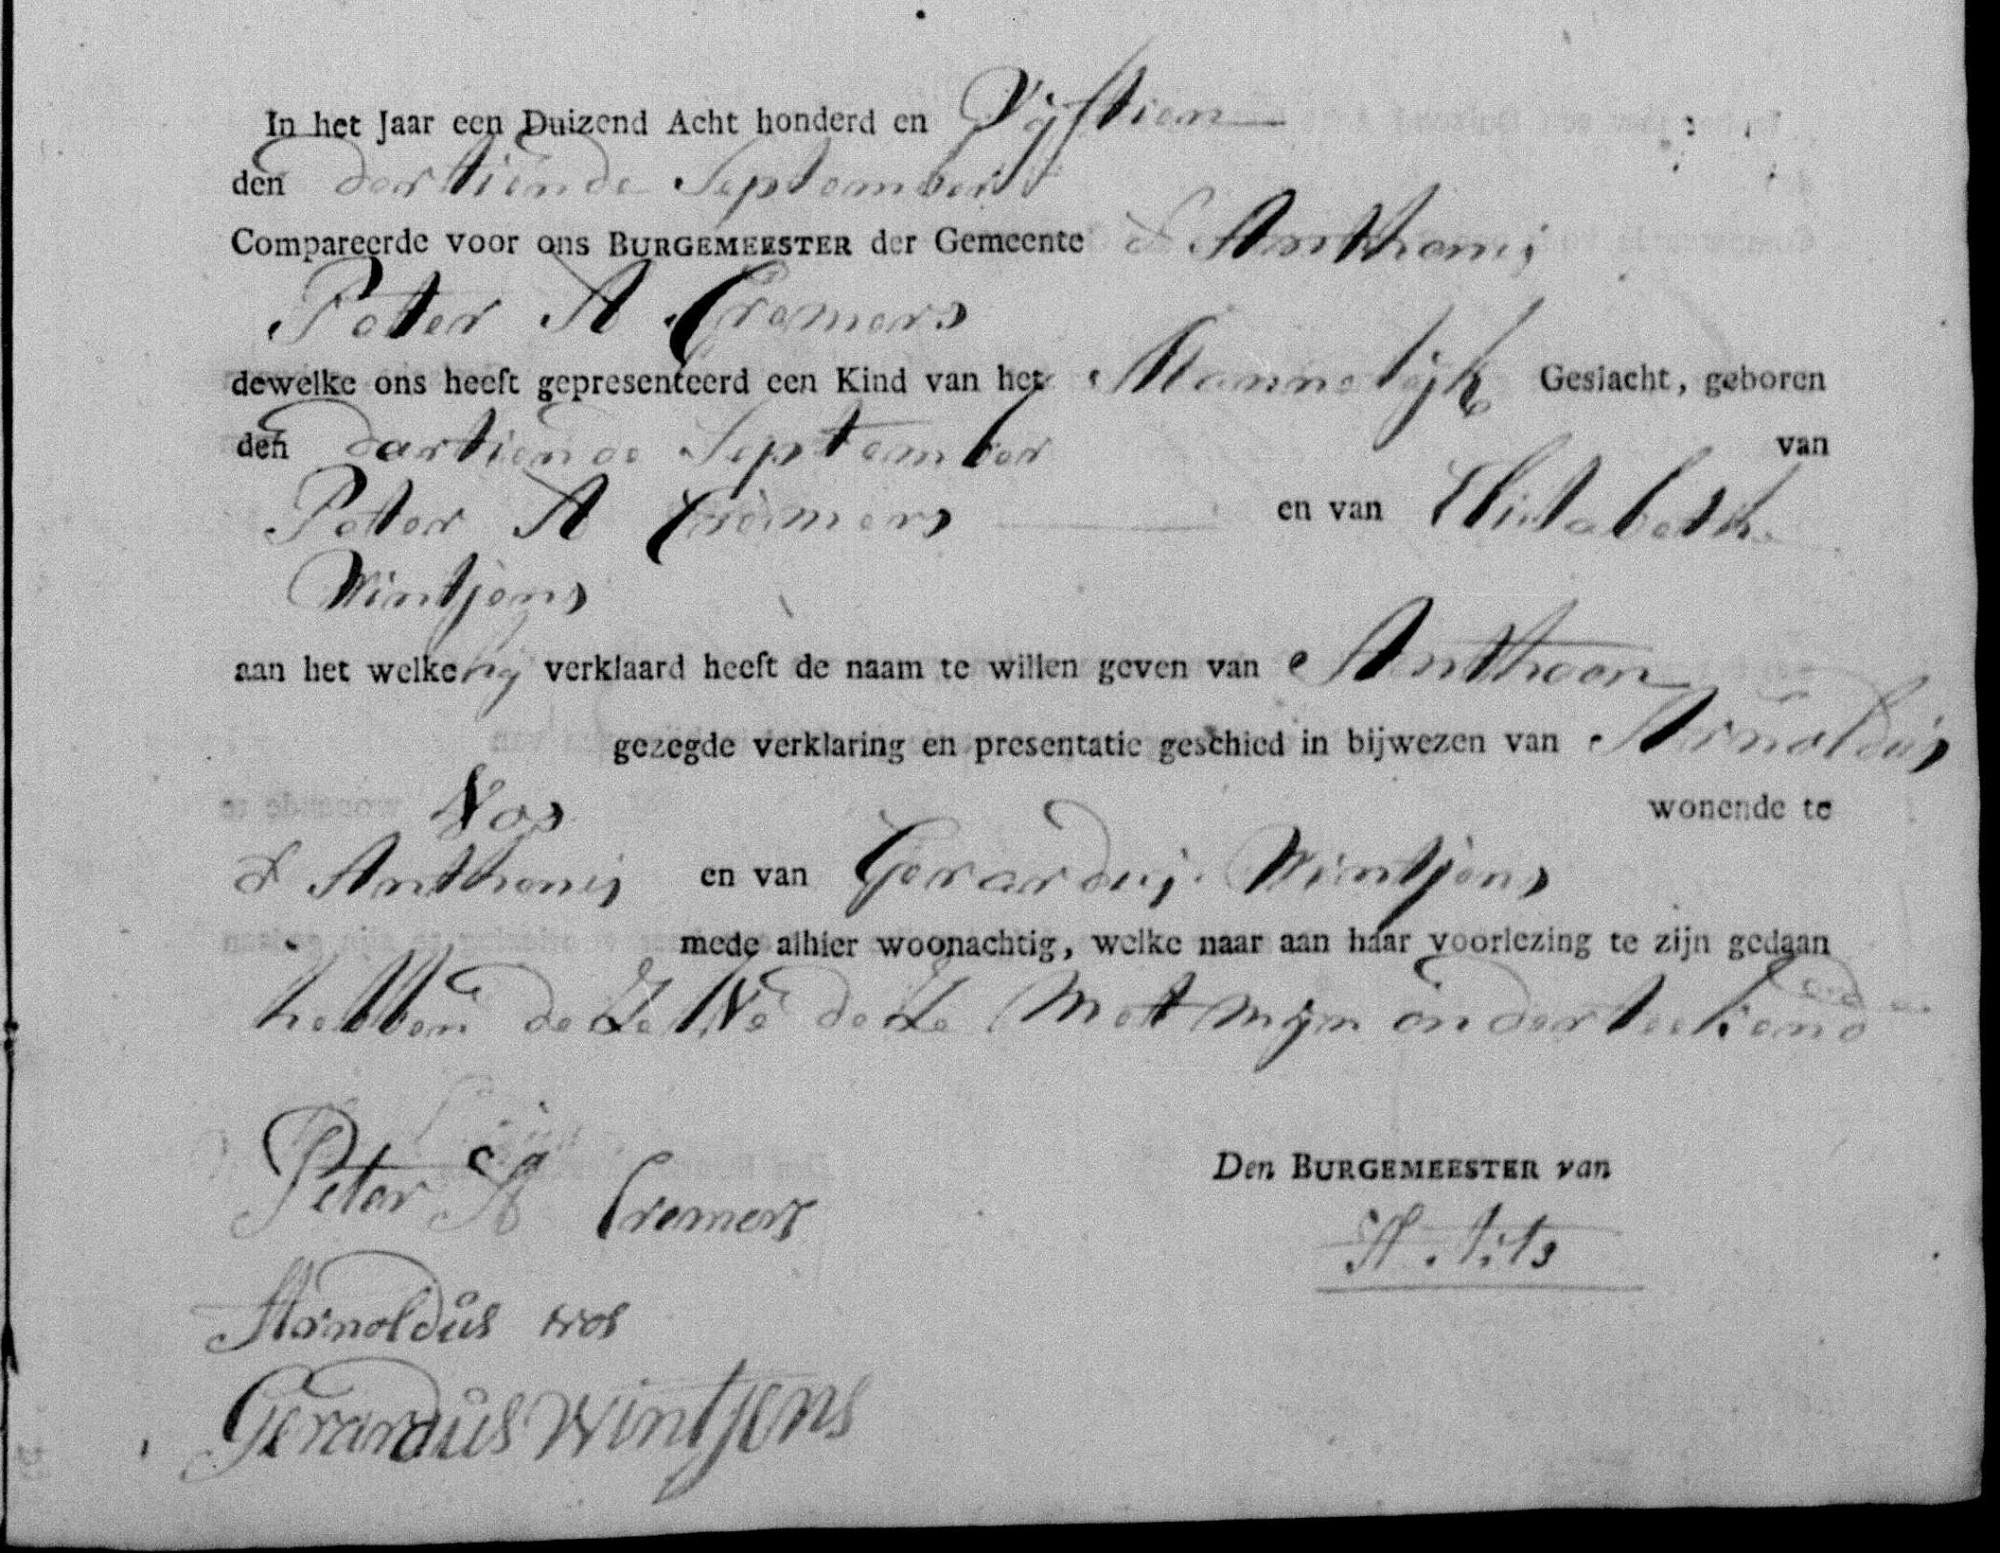 In het Jaar een Duizend Acht honderd en Vijftien
den dertiende September
Compareerde voor ons BURGEMEESTER der Gemeente St Anthonij
Peter A Cremers
dewelke ons heeft gepresenteerd een Kind van het Mannelijk Geslacht, geboren
den dartiende September van
Peter A Cremers en van Elisabeth
Wintjens
aan het welke hij verklaard heeft de naam te willen geven van Anthoon
gezegde verklaring en presentatie geschied in bijwezen van Arnoldus
Vos wonende te
St Anthonij en van Gerardus Wintjens
mede alhier woonachtig, welke naar aan haar voorlezing te zijn gedaan
hebben de Zelve deze Met Mijn onderteekend
Peter A Cremers
Den BURGEMEESTER van
Arnoldus vos
Gerardus Wintjens